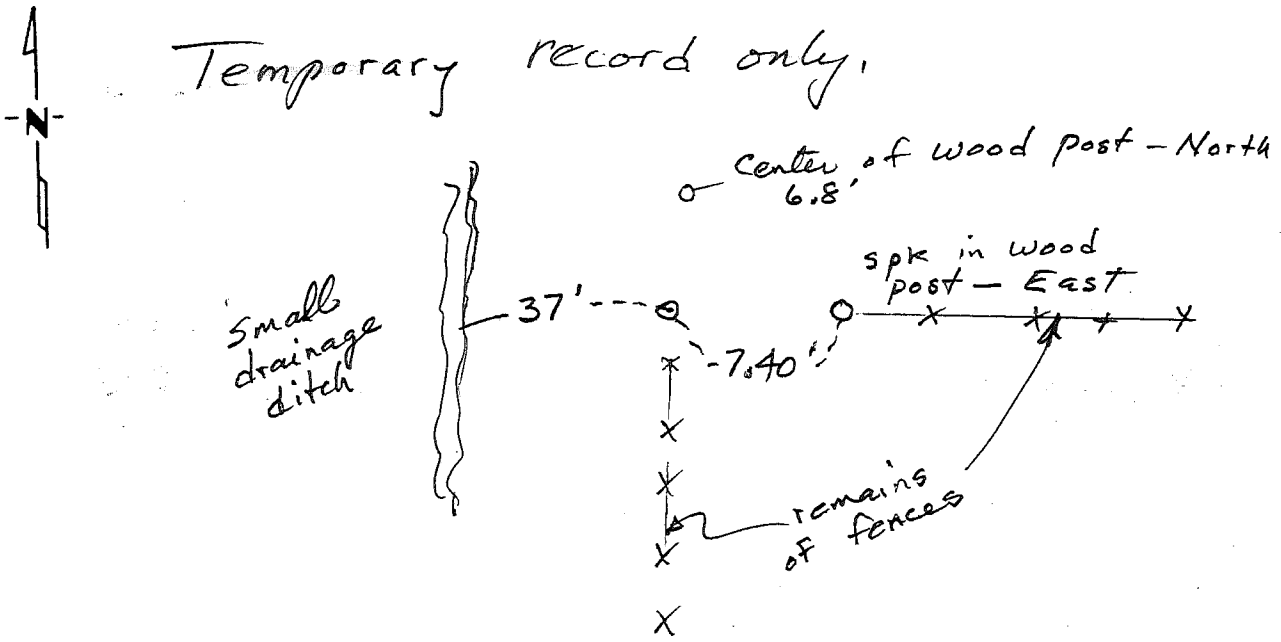 Temporary record only.
-N-
center of wood post - North
6.8'
spk in wood
post - East
37'
small
drainage
ditch
7.40'
remains
of fences